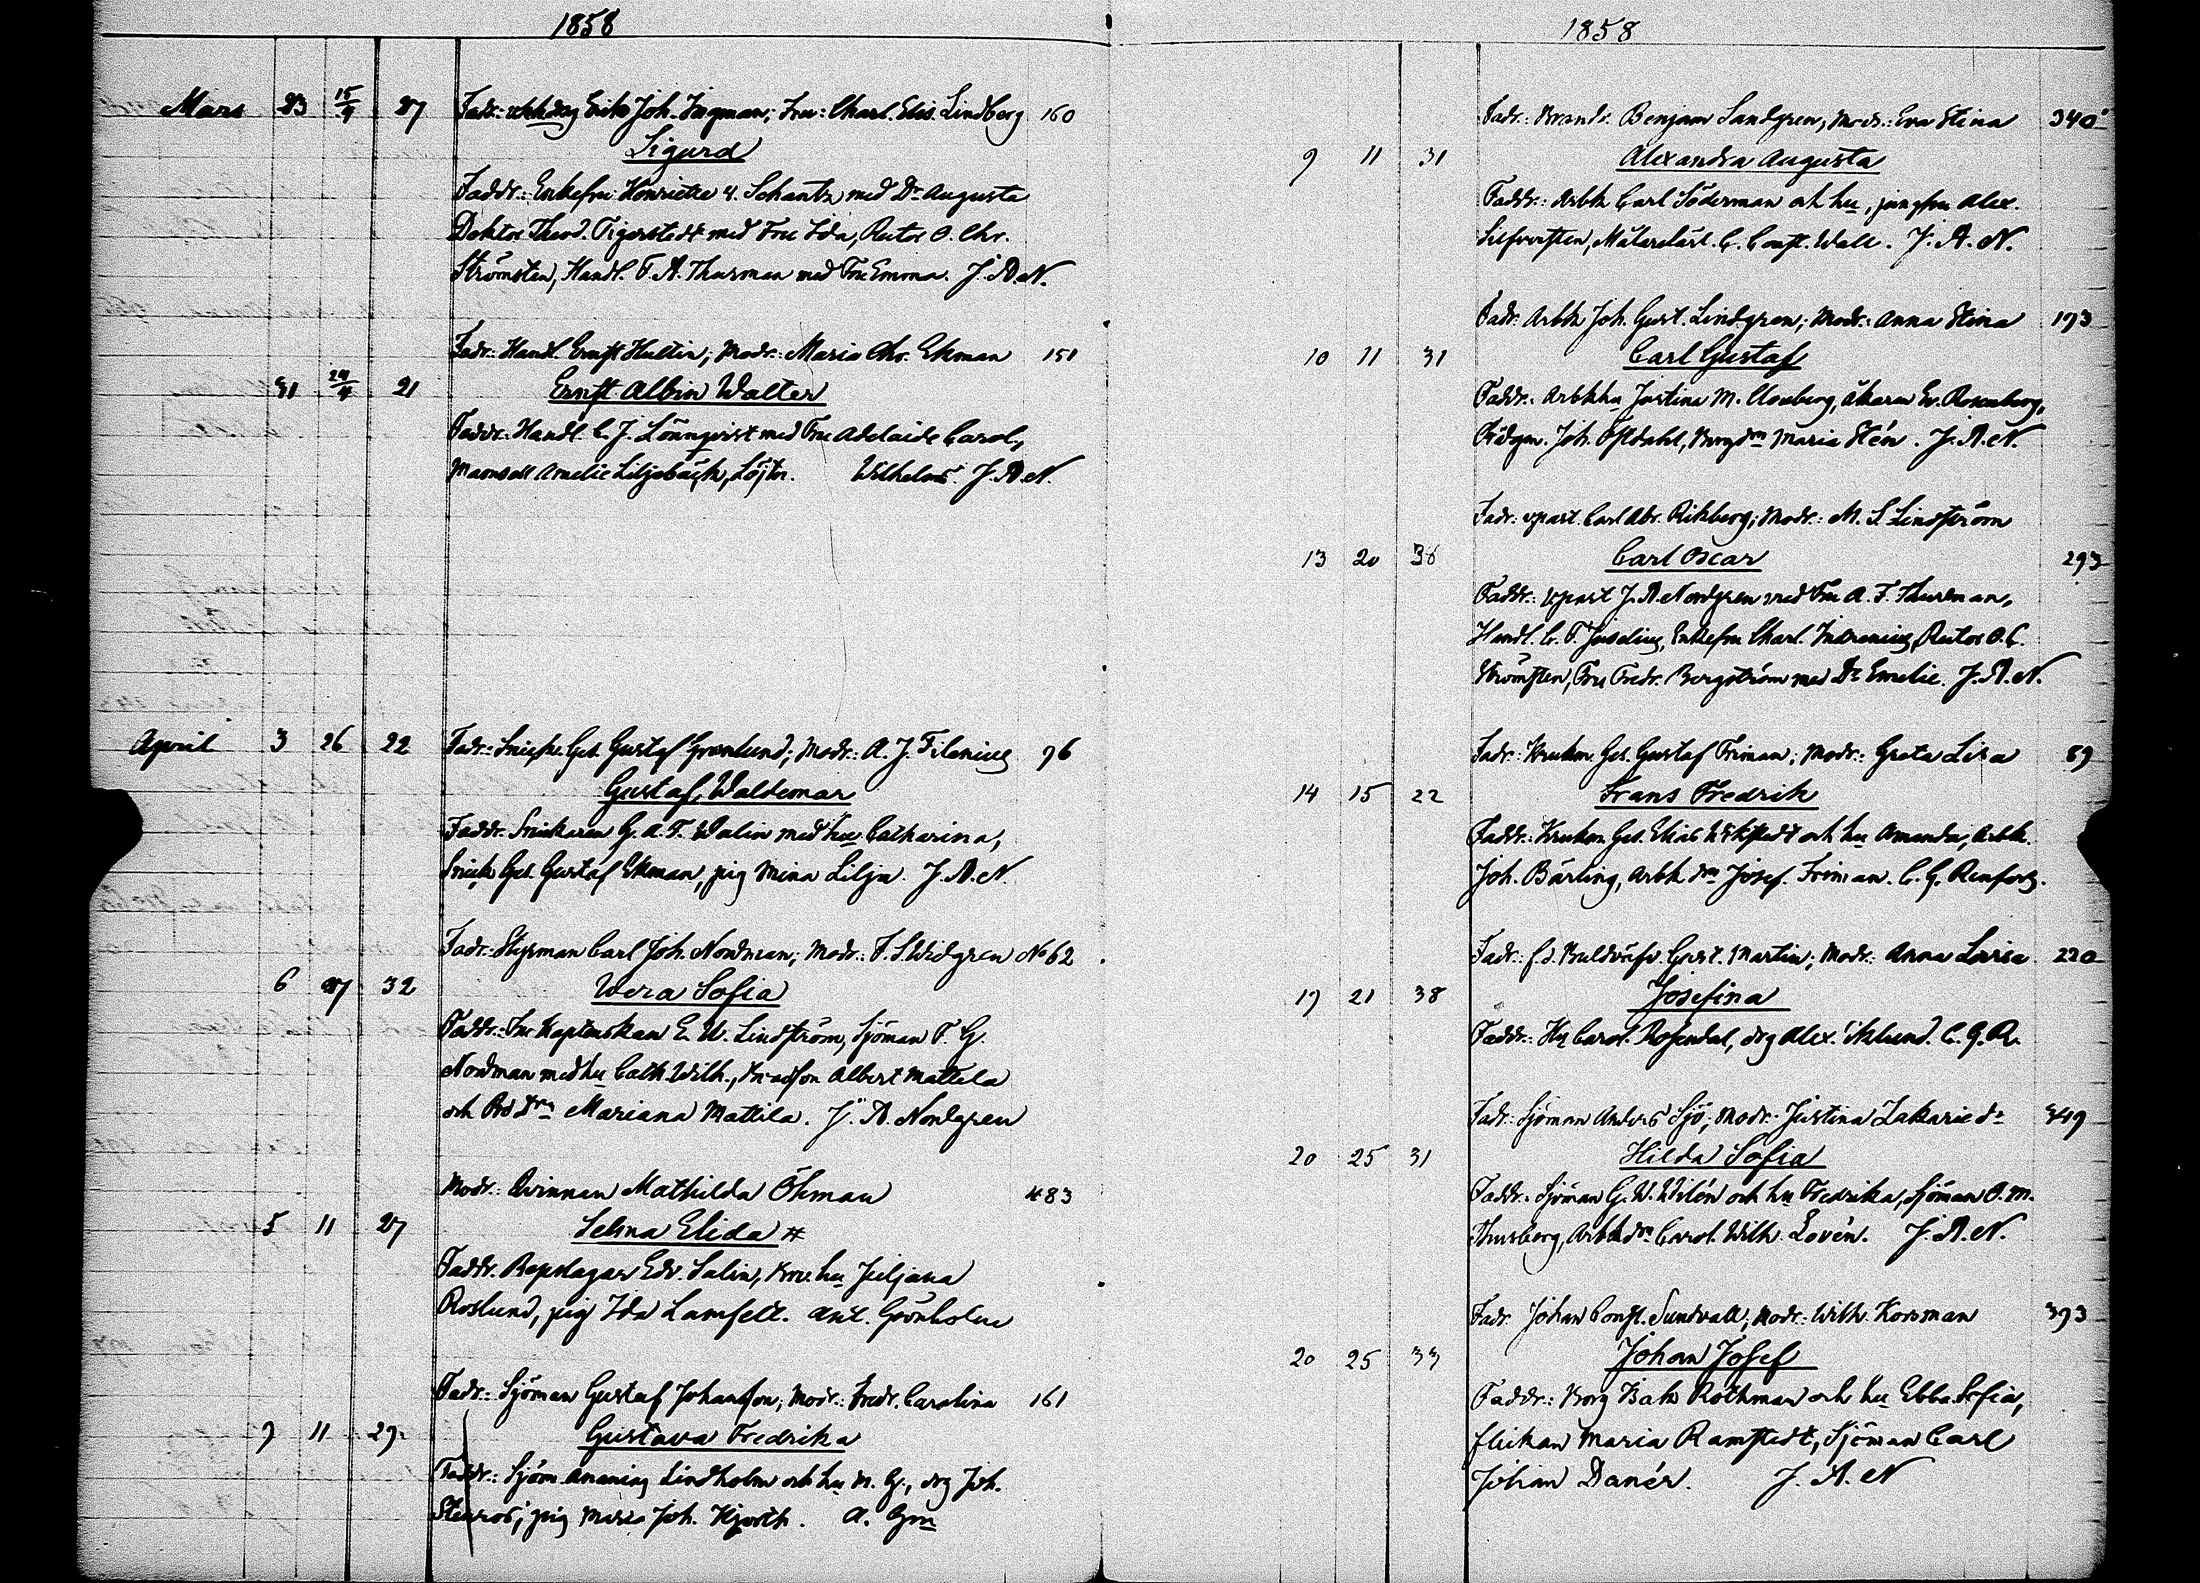 1858
Mars 23 15/4 27 Fadr: Erik Joh. Ingman; Fru: Charl. Elis. Lindberg 160
Sigurd
Faddr: Enkefru Henriette v. Schantz med Dr Augusta
Doktor Theod. Tigerstedt med Fru Ida, Rector O. Chr.
Strömsten, Handl. F. A. Thurman med Fru Emma. J. A. N.
Fadr: Handl. Ernst Hultin; Modr: Maria Chr. Ekman 151
31 24/4 21 Ernst Albin Walter
Faddr: Handl. C. J. Lönnqvist med Fru Adelaide Carol.,
Mamsell Amelie Liljebäck, Löjtn. Wilhelms. J. A. N.
April 3 26 22 Fadr: Snick. Ges. Gustaf Grönlund; Modr: A. J. Filenius 96
Gustaf Waldemar
Faddr. Snickaren G. A. F. Walin med hu Catharina,
Snick. Ges. Gustaf Ekman, pig Mina Lilja. J. A. N.
Fadr: Styrman Carl Joh. Nordman; Modr: F. S. Widgren No 62
6 27 32 Wera Sofia
Faddr: Fru Kaptenskan E. W. Lindström, Sjöman F. G.
Nordman med hu Cath. Wilh., Albert Mattila
och Mariana Mattila. J. A. Nordgren
Modr: Qvinnan Mathilda Öhman 483
5 11 27 Selma Elida #
Faddr. Repslagar Edv. Salin, hu Juljana
Roslund, pig Ida Lamfelt. Ant. Grönholm
Fadr: Sjöman Gustaf Johansson; Modr: Fredr. Carolina 161
9 11 29 Gustava Fredrika
Faddr: Sjöm. Ananias Lindholm och hu M. G., drg Joh.
Stenros; pig Maria Joh. Hjorth. A. Gm
1858
Fadr: Benjam Sandgren, Modr: Eva Stina 340
9 11 31 Alexandra Augusta
Faddr: Arbk Carl Söderman och hu, jungfru Alex.
Silfversten, Målarelärl. C. Const. Wall. J. A. N.
Fadr: Arbk Joh. Gust. Lindgren; Modr: Anna Stina 193
10 11 31 Carl Gustaf
Faddr: Arbkhu Justina M. Åkaren Ev. Rosenberg,
Joh. Öfldahl, Maria Stén. J. A. N.
Fadr: Carl Abr. Rikberg; Modr: M. S. Lindström
13 20 38 Carl Oscar 293
Faddr: J. A. Nordgren med Fru A. F. Thurman,
Handl. C. F. Juselius, Enkefru Charl. Indrenius, Rector O. C.
Strömsten, Fru Fredr. Bergström med Dr Emelie. J. A. N.
Fadr: Krukm. Ges. Gustaf Friman; Modr: Greta Lisa 89
14 15 22 Frans Fredrik
Faddr: Krukm. Ges. Elias Wikstedt och hu Amanda, Arbk.
Joh. Bärling, Arbk dr Josef. Friman. C. G. Renfors.
Fadr: fd. Gust. Martin; Modr: Anna Lovisa 220
19 21 38 Josefina
Faddr: Hu Carol. Rosendal, drg Alex. C. G. R.
Fadr: Sjöman Anders Sjö; Modr: Justina Zakarie dr 349
20 25 31 Hilda Sofia
Faddr: Sjöman G. W. Wilén och hu Fredrika, Sjöman O. M.
Arbkdr Carol. Wilh. Lovén. J. A. N.
Fadr Johan Const. Sundvall; Modr: Wilh. Korsman 393
20 25 33 Johan Josef
Faddr: Rothman och hu Ebba Sofia,
flickan Maria Ramstedt, Sjöman Carl
Johan Danér. J. A. N